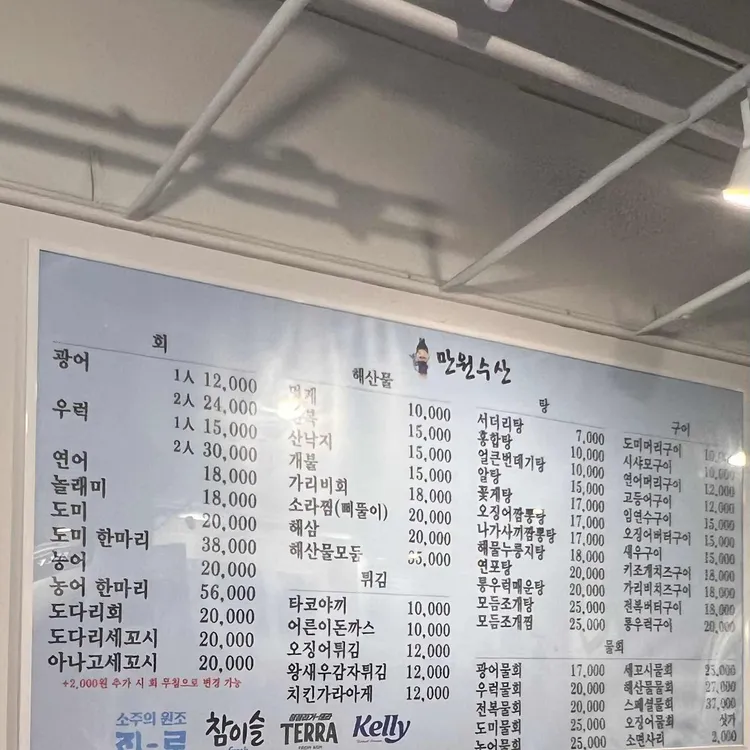 만원수산
회
광어 1人 12,000
2人 24,000
우럭 1人 15,000
2人 30,000
연어 18,000
놀래미 18,000
도미 20,000
도미 한마리 38,000
농어 20,000
농어 한마리 56,000
도다리회 20,000
도다리세꼬시 20,000
아나고세꼬시 20,000
+2,000원 추가 시 회 무침으로 변경 가능
해산물
멍게 10,000
15,000
산낙지 15,000
개불 15,000
가리비회 18,000
소라찜(삐뚤이) 20,000
해삼 20,000
해산물모듬 35,000
튀김
타코야끼 10,000
어른이돈까스 10,000
오징어튀김 12,000
왕새우감자튀김 12,000
치킨가라아게 12,000
탕
서더리탕 7,000
홍합탕 10,000
얼큰번데기탕 10,000
알탕 15,000
꽃게탕 17,000
오징어짬뽕탕 17,000
나가사끼짬뽕탕 17,000
해물누룽지탕 18,000
연포탕 20,000
통우럭매운탕 20,000
모듬조개탕 25,000
모듬조개찜 25,000
구이
도미머리구이
시샤모구이 10,000
연어머리구이 12,000
고등어구이 12,000
임연수구이 15,000
오징어버터구이 15,000
새우구이 15,000
키조개치즈구이 18,000
가리비치즈구이 18,000
전복버터구이 18,000
통우럭구이 20,000
물회
광어물회 17,000
우럭물회 20,000
전복물회 20,000
도미물회 25,000
농어물회 25,000
세꼬시물회 25,000
해산물물회 27,000
스페셜물회 37,000
오징어물회 싯가
소면사리 2,000
소주의 원조
참이슬
TERRA
Kelly